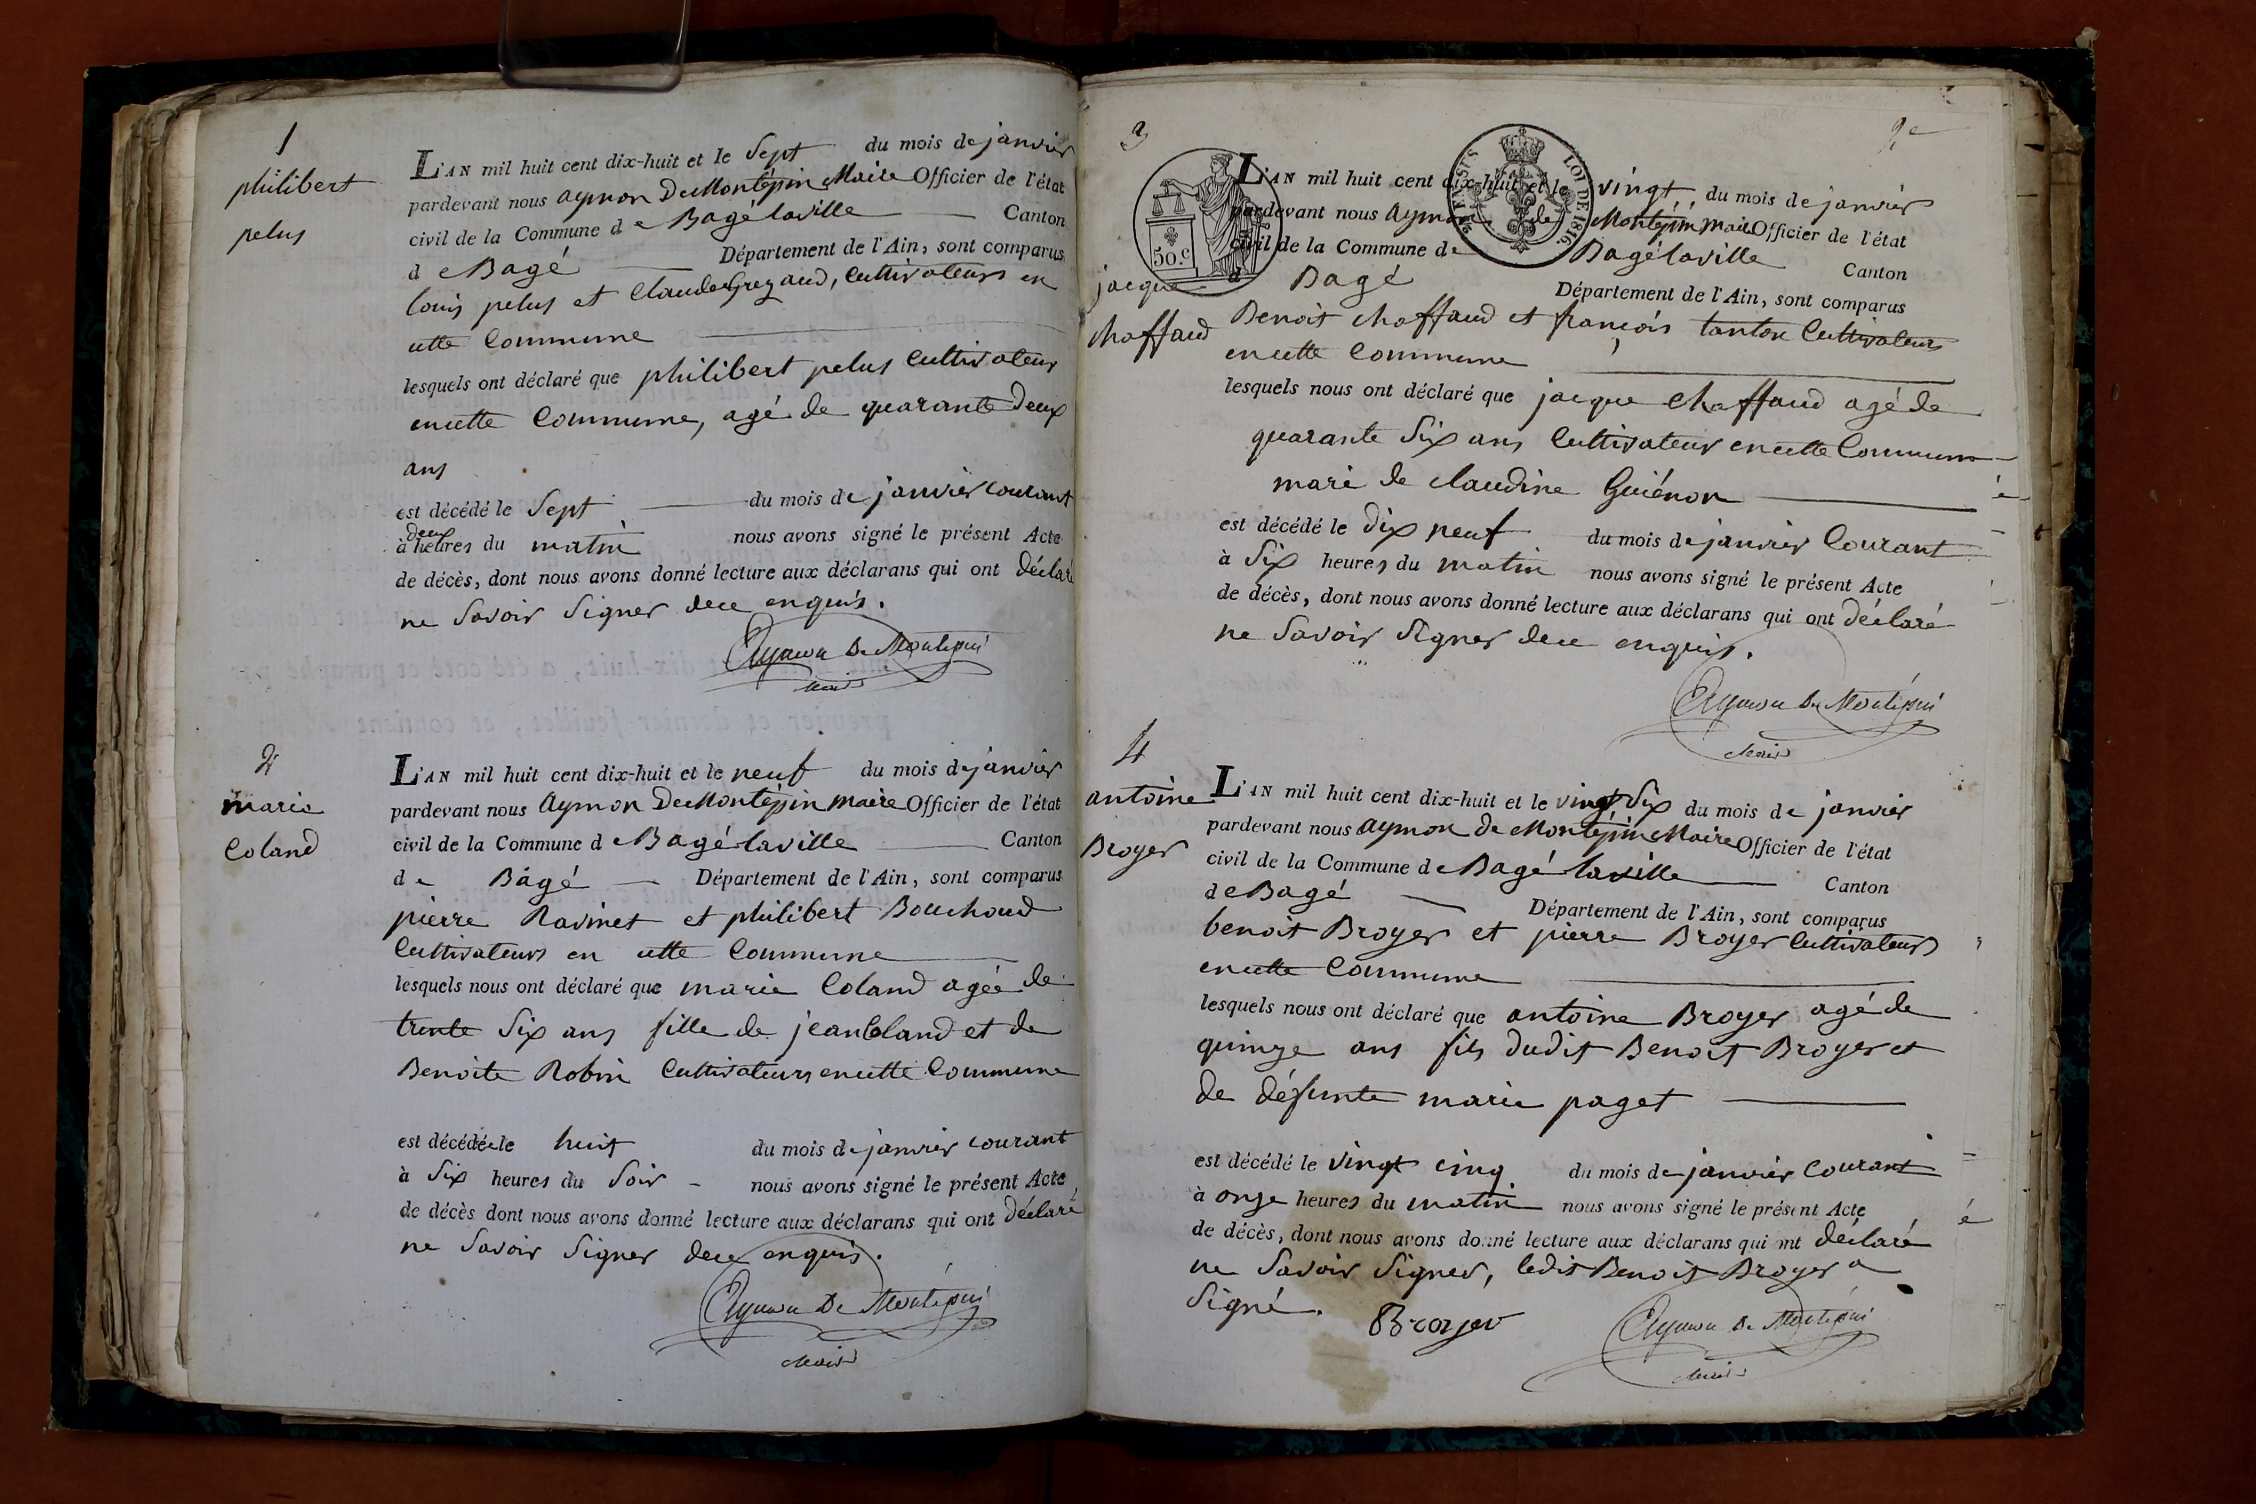 1
philibert
pelus
L'AN mil huit cent dix-huit et le Sept du mois de janvier
pardevant nous aymon De Montépin Maire Officier de l'état
civil de la Commune de Bagé laville Canton
de Bagé Département de l'Ain, sont comparus
louis pelus et Claude Greyaud, Cultivateurs en
cette Commune
lesquels ont déclaré que philibert pelus Cultivateur
en cette Commune, agé de quarante Deux
ans
est décédé le Sept du mois de janvier courant
à deux heures du matin nous avons signé le présent Acte
de décès, dont nous avons donné lecture aux déclarans qui ont déclaré
ne Savoir Signer de ce enquis.
Aymon De Montépin
Maire
2
marie
Coland
L'AN mil huit cent dix-huit et le neuf du mois de janvier
pardevant nous Aymon De Montépin maire Officier de l'état
civil de la Commune de Bagé laville Canton
de Bagé Département de l'Ain, sont comparus
pierre Ravinet et philibert Bouchoud
Cultivateurs en cette Commune
lesquels nous ont déclaré que marie Coland agée de
trente Six ans fille de jean Coland et de
Benoite Robin Cultivateurs en cette Commune
est décédée le huit du mois de janvier courant
à Six heures du Soir nous avons signé le présent Acte
de décès dont nous avons donné lecture aux déclarans qui ont déclaré
ne Savoir Signer de ce enquis.
Aymon De Montépin
Maire
2e
3
jacque
Chaffaud
50.c
LOI DE 1816.
L'AN mil huit cent dix-huit et le vingt du mois de janvier
pardevant nous Aymon de Montépin, maire Officier de l'état
civil de la Commune de Bagé laville Canton
d Bagé Département de l'Ain, sont comparus
Benoit Chaffaud et françois tanton Cultivateurs
en cette Commune
lesquels nous ont déclaré que jacque Chaffaud agé de
quarante Six ans Cultivateur en cette Commune
mari de Claudine Guiénon
est décédé le dix neuf du mois de janvier Courant
à Six heures du matin nous avons signé le présent Acte
de décès, dont nous avons donné lecture aux déclarans qui ont déclaré
ne Savoir Signer de ce enquis.
Aymon De Montépin
Maire
4
antoine
Broyer
L'AN mil huit cent dix-huit et le vingt Six du mois de janvier
pardevant nous aymon de Montépin Maire Officier de l'état
civil de la Commune de Bagé laville Canton
de Bagé Département de l'Ain, sont comparus
benoit Broyer et pierre Broyer Cultivateurs
en cette Commune
lesquels nous ont déclaré que antoine Broyer agé de
quinze ans fils dudit Benoit Broyer et
de défunte marie paget
est décédé le vingt cinq du mois de janvier Courant
à onze heures du matin nous avons signé le présent Acte
de décès, dont nous avons donné lecture aux déclarans qui ont déclaré
ne Savoir Signer, ledit Benoit Broyer a
Signé.
Broyer
Aymon De Montépin
Maire